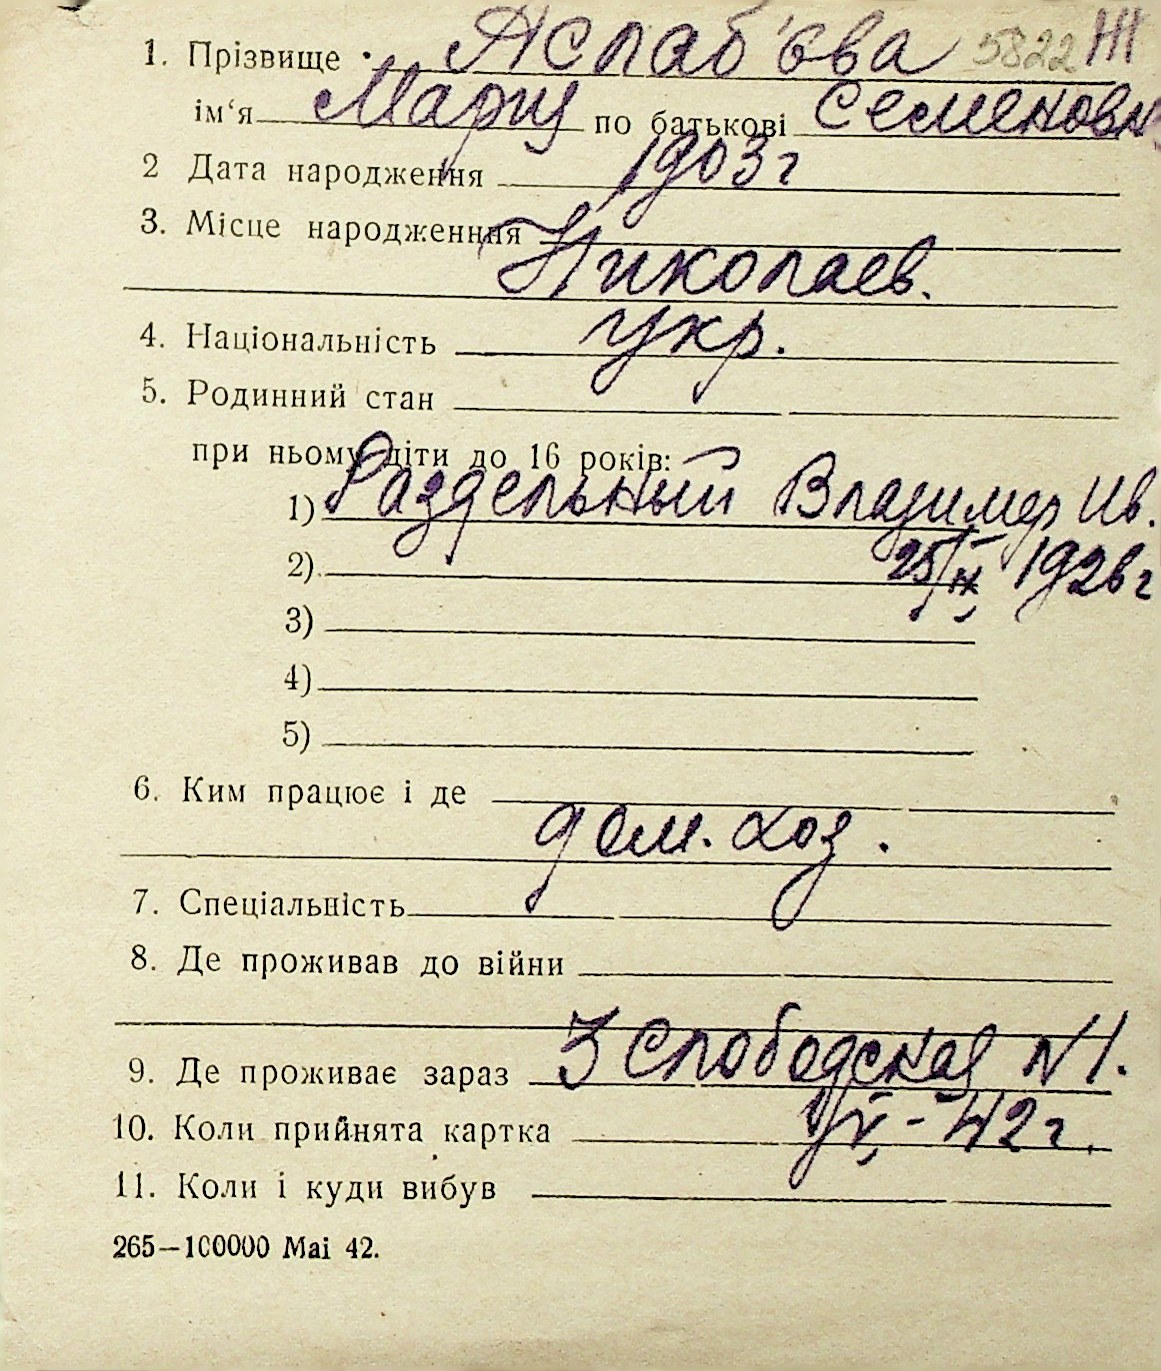 1. Прізвище Яслаб'єва 5822 Ж
ім‘я Мария по батькові Семеновн
2 Дата народження 1903 г
3. Місце народженння
Николаев.
4. Національність укр.
5. Родинний стан
при ньому діти до 16 років:
1) Раздельный Владимир Ив.
2) 25/IX 1926 г
3)
4)
5)
6. Ким працює і де
дом. хоз.
7. Спеціальність
8. Де проживав до війни
9. Де проживає зараз 3 Слободская N 1.
10. Коли прийнята картка 42 г.
11. Коли і куди вибув
265—100000 Mai 42.